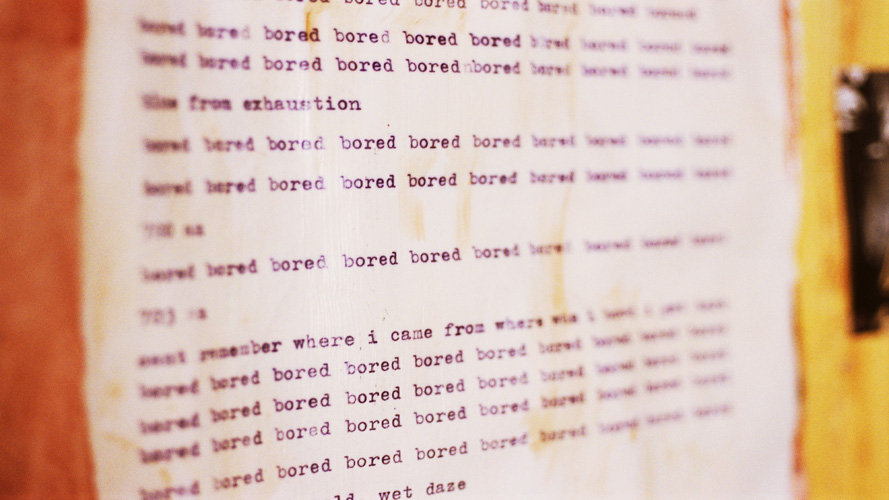 bored bored bored bored bored bored
bored bored bored bored bored bored bored bored bored
bored bored bored bored bored bored bored bored bored
from exhaustion
bored bored bored bored bored bored bored bored bored
bored bored bored bored bored bored bored bored bored
bored bored bored bored bored bored bored bored bored
remember where i came from where
bored bored bored bored bored bored bored bored bored
bored bored bored bored bored bored bored bored bored
bored bored bored bored bored bored bored bored bored
bored bored bored bored bored bored bored bored bored
wet daze